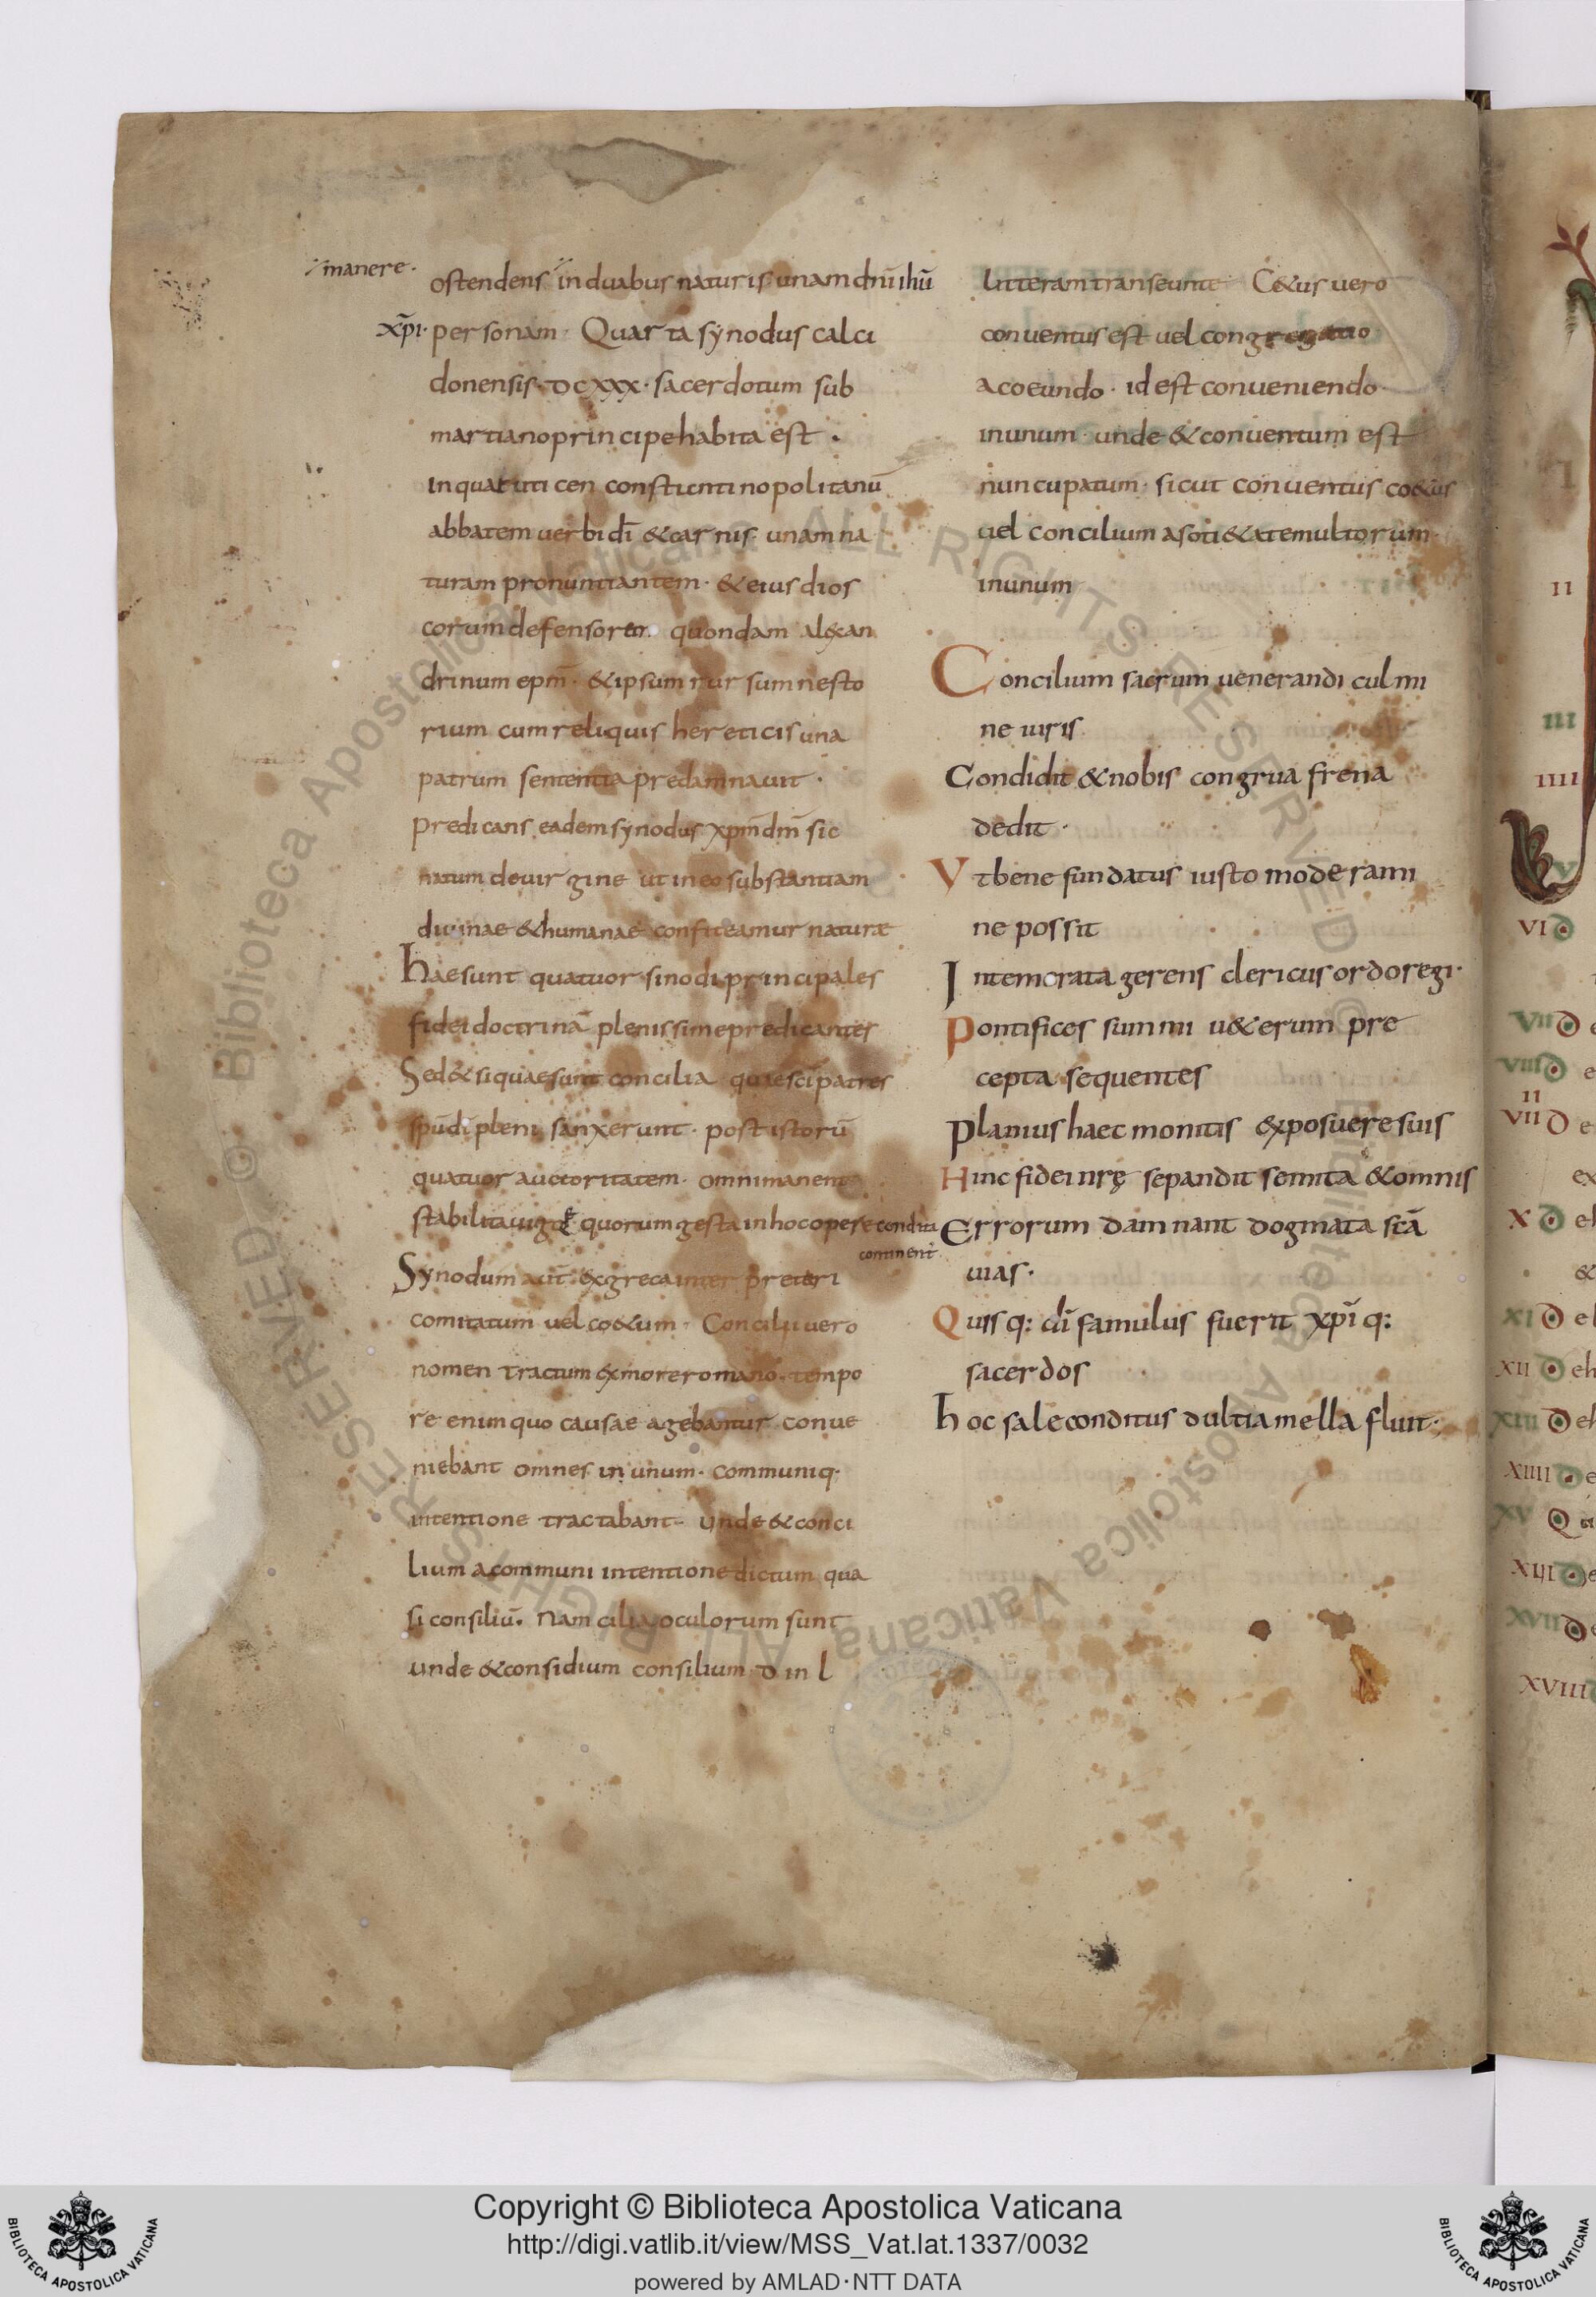 manere·
ostendens in duabus naturis unam dnī ihū
xp̄i· personam· Quarta synodus calci
donensis· DCXXX· sacerdotum sub
martiano principe habita est ·
in qua
abbatem uerbi dī & carnis unam na
turam pronuntiantem· & eius dios
corum defensorem quondam alexan
drinum ep̄m· & ipsum rursum nesto
rium cum reliquis hereticis una
patrum sententia predamnauit ·
predicans eadem synodus xp̄m dn̄m sic
natum de uirgine ut in eo substantiam
diuinae & humanae confiteamur naturae
Hae sunt quatuor sinodi principales
fidei doctrinā plenissime predicantes
Sed & si quae sunt concilia quae sc̄i patres
sp̄u dī pleni sanxerunt· post istorū
quatuor auctoritatem· omni manent
stabilita uigore quorum gesta in hoc opere condita
continent
Synodum aut̄ ex greca inter preteri
comitatum uel coetum· Concilii uero
nomen tractum ex more romano· tempo
re enim quo causae agebantur conue
niebant omnes in unum· communiq·
intentione tractabant· Unde & conci
lium a communi intentione dictum qua
si consiliū· Nam cilia oculorum sunt
unde & considium consilium D in l
litteram transeunte C&us uero
conuentus est uel congregatio
a coeundo· id est conueniendo
in unum· unde & conuentum est
nuncupatum· sicut conuentus co&us
uel concilium a soti&ate multorum
in unum
Concilium sacrum uenerandi culmi
ne iuris
Condidit & nobis congrua frena
dedit ·
Vt bene fundatus iusto moderami
ne possit
Intemerata gerens clericus ordo regi·
Pontifices summi u&erum pre
cepta sequentes
Planius haec monitis exposuere suis
Hinc fidei nr̄ę se pandit semita & omnis
Errorum damnant dogmata sc̄a
uias·
Quisq: dī famulus fuerit xp̄i q:
sacerdos
Hoc sale conditus dultia mella fluit·
II
III
IIII
V
VI D
VII D
VIII D
II
VII D
X D
XI D
XII D
XIII D
XIIII
XV
XVII
XVIII
Copyright © Biblioteca Apostolica Vaticana
http://digi.vatlib.it/view/MSS_Vat.lat.1337/0032
powered by AMLAD·NTT DATA
BIBLIOTECA APOSTOLICA VATICANA
BIBLIOTECA APOSTOLICA VATICANA